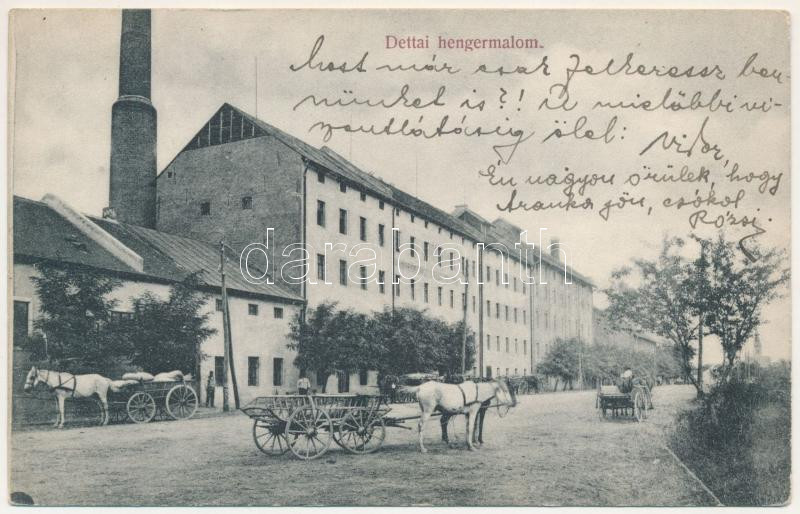 Dettai hengermalom.
Most már csak Felkeressz ben-
nünket is?! A mielőbbi vi-
szontlátásig ölel:
Vidor,
Én nagyon örülek, hogy
Aranka jön, csókol
Rózsi
© darabanth